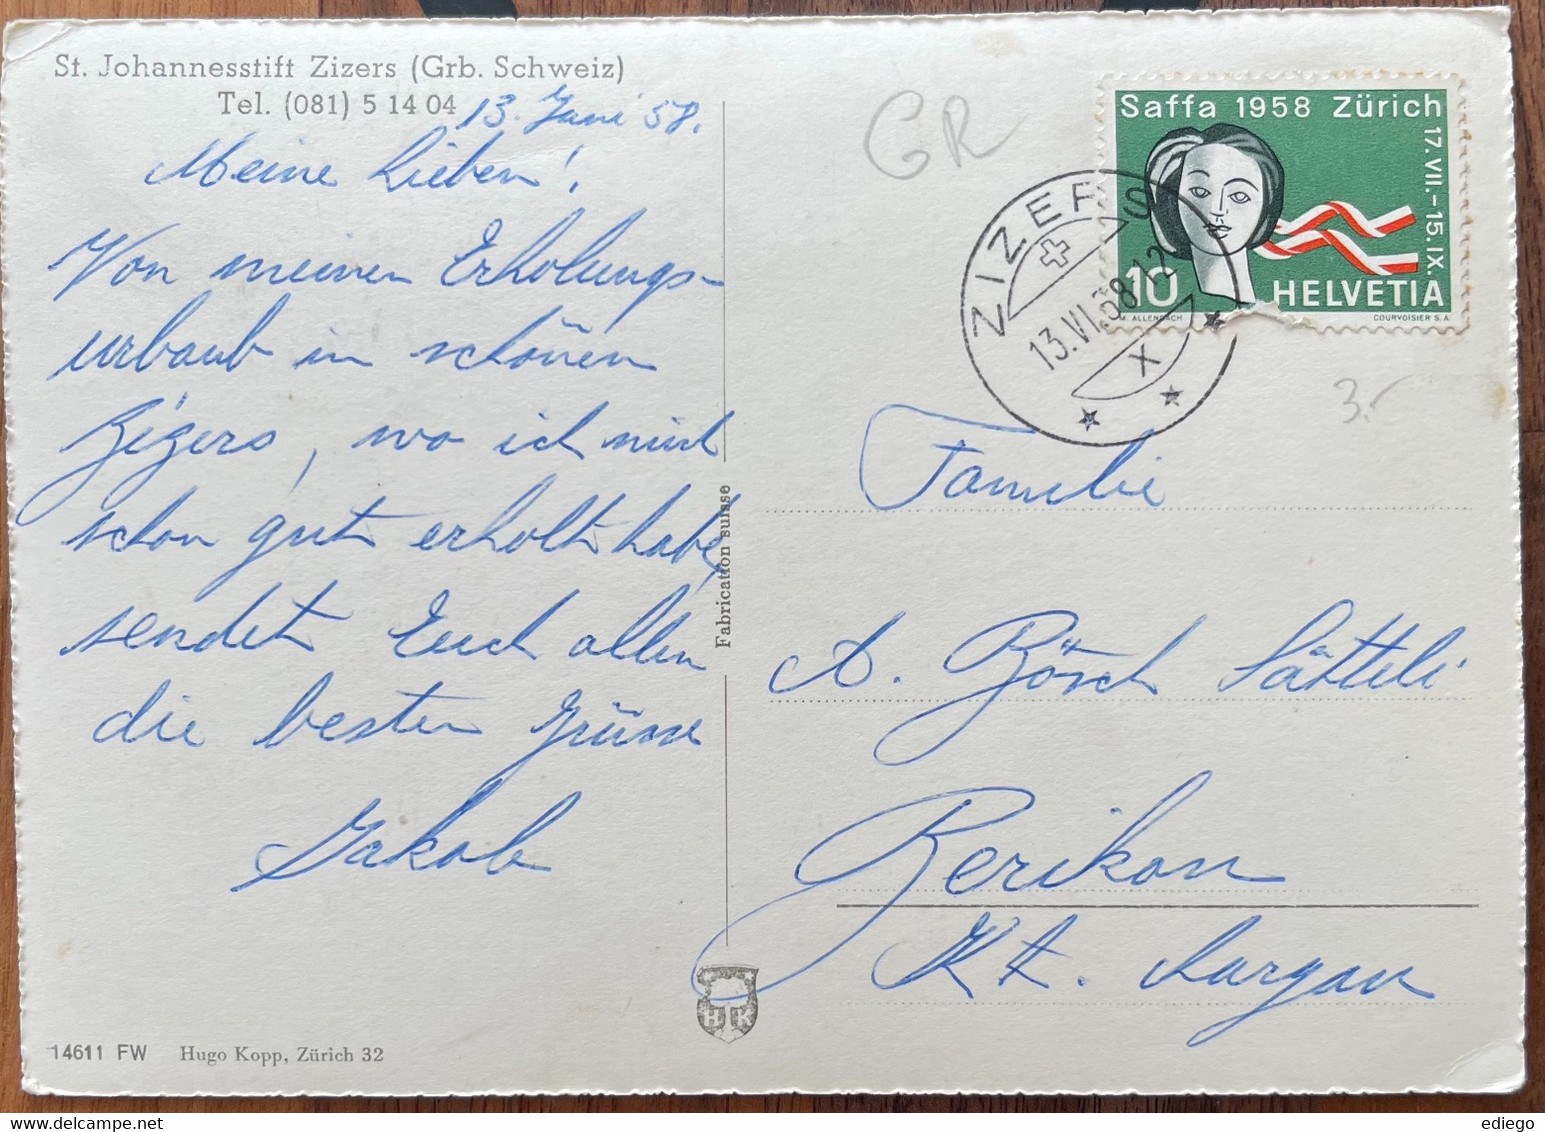 St. Johannesstift Zizers (Grb. Schweiz)
Tel. (081) 5 14 04
13. Juni 58.
Meine Lieben!
Von meinen Erholungs-
urlaub in schönen
Zizers, wo ich mich
schon gut erholt habe,
sendet Euch allen
die besten Grüsse
Jakob
14611 FW Hugo Kopp, Zürich 32
Fabrication suisse
HK
GR
Saffa 1958 Zürich
17. VII.-15. IX.
10 HELVETIA
M. ALLENBACH COURVOISIER S.A.
ZIZERS
13.VI.58-12
X
3.-
Familie
A. Bösch Sätteli
Berikon
Kt. Aargau
edlego